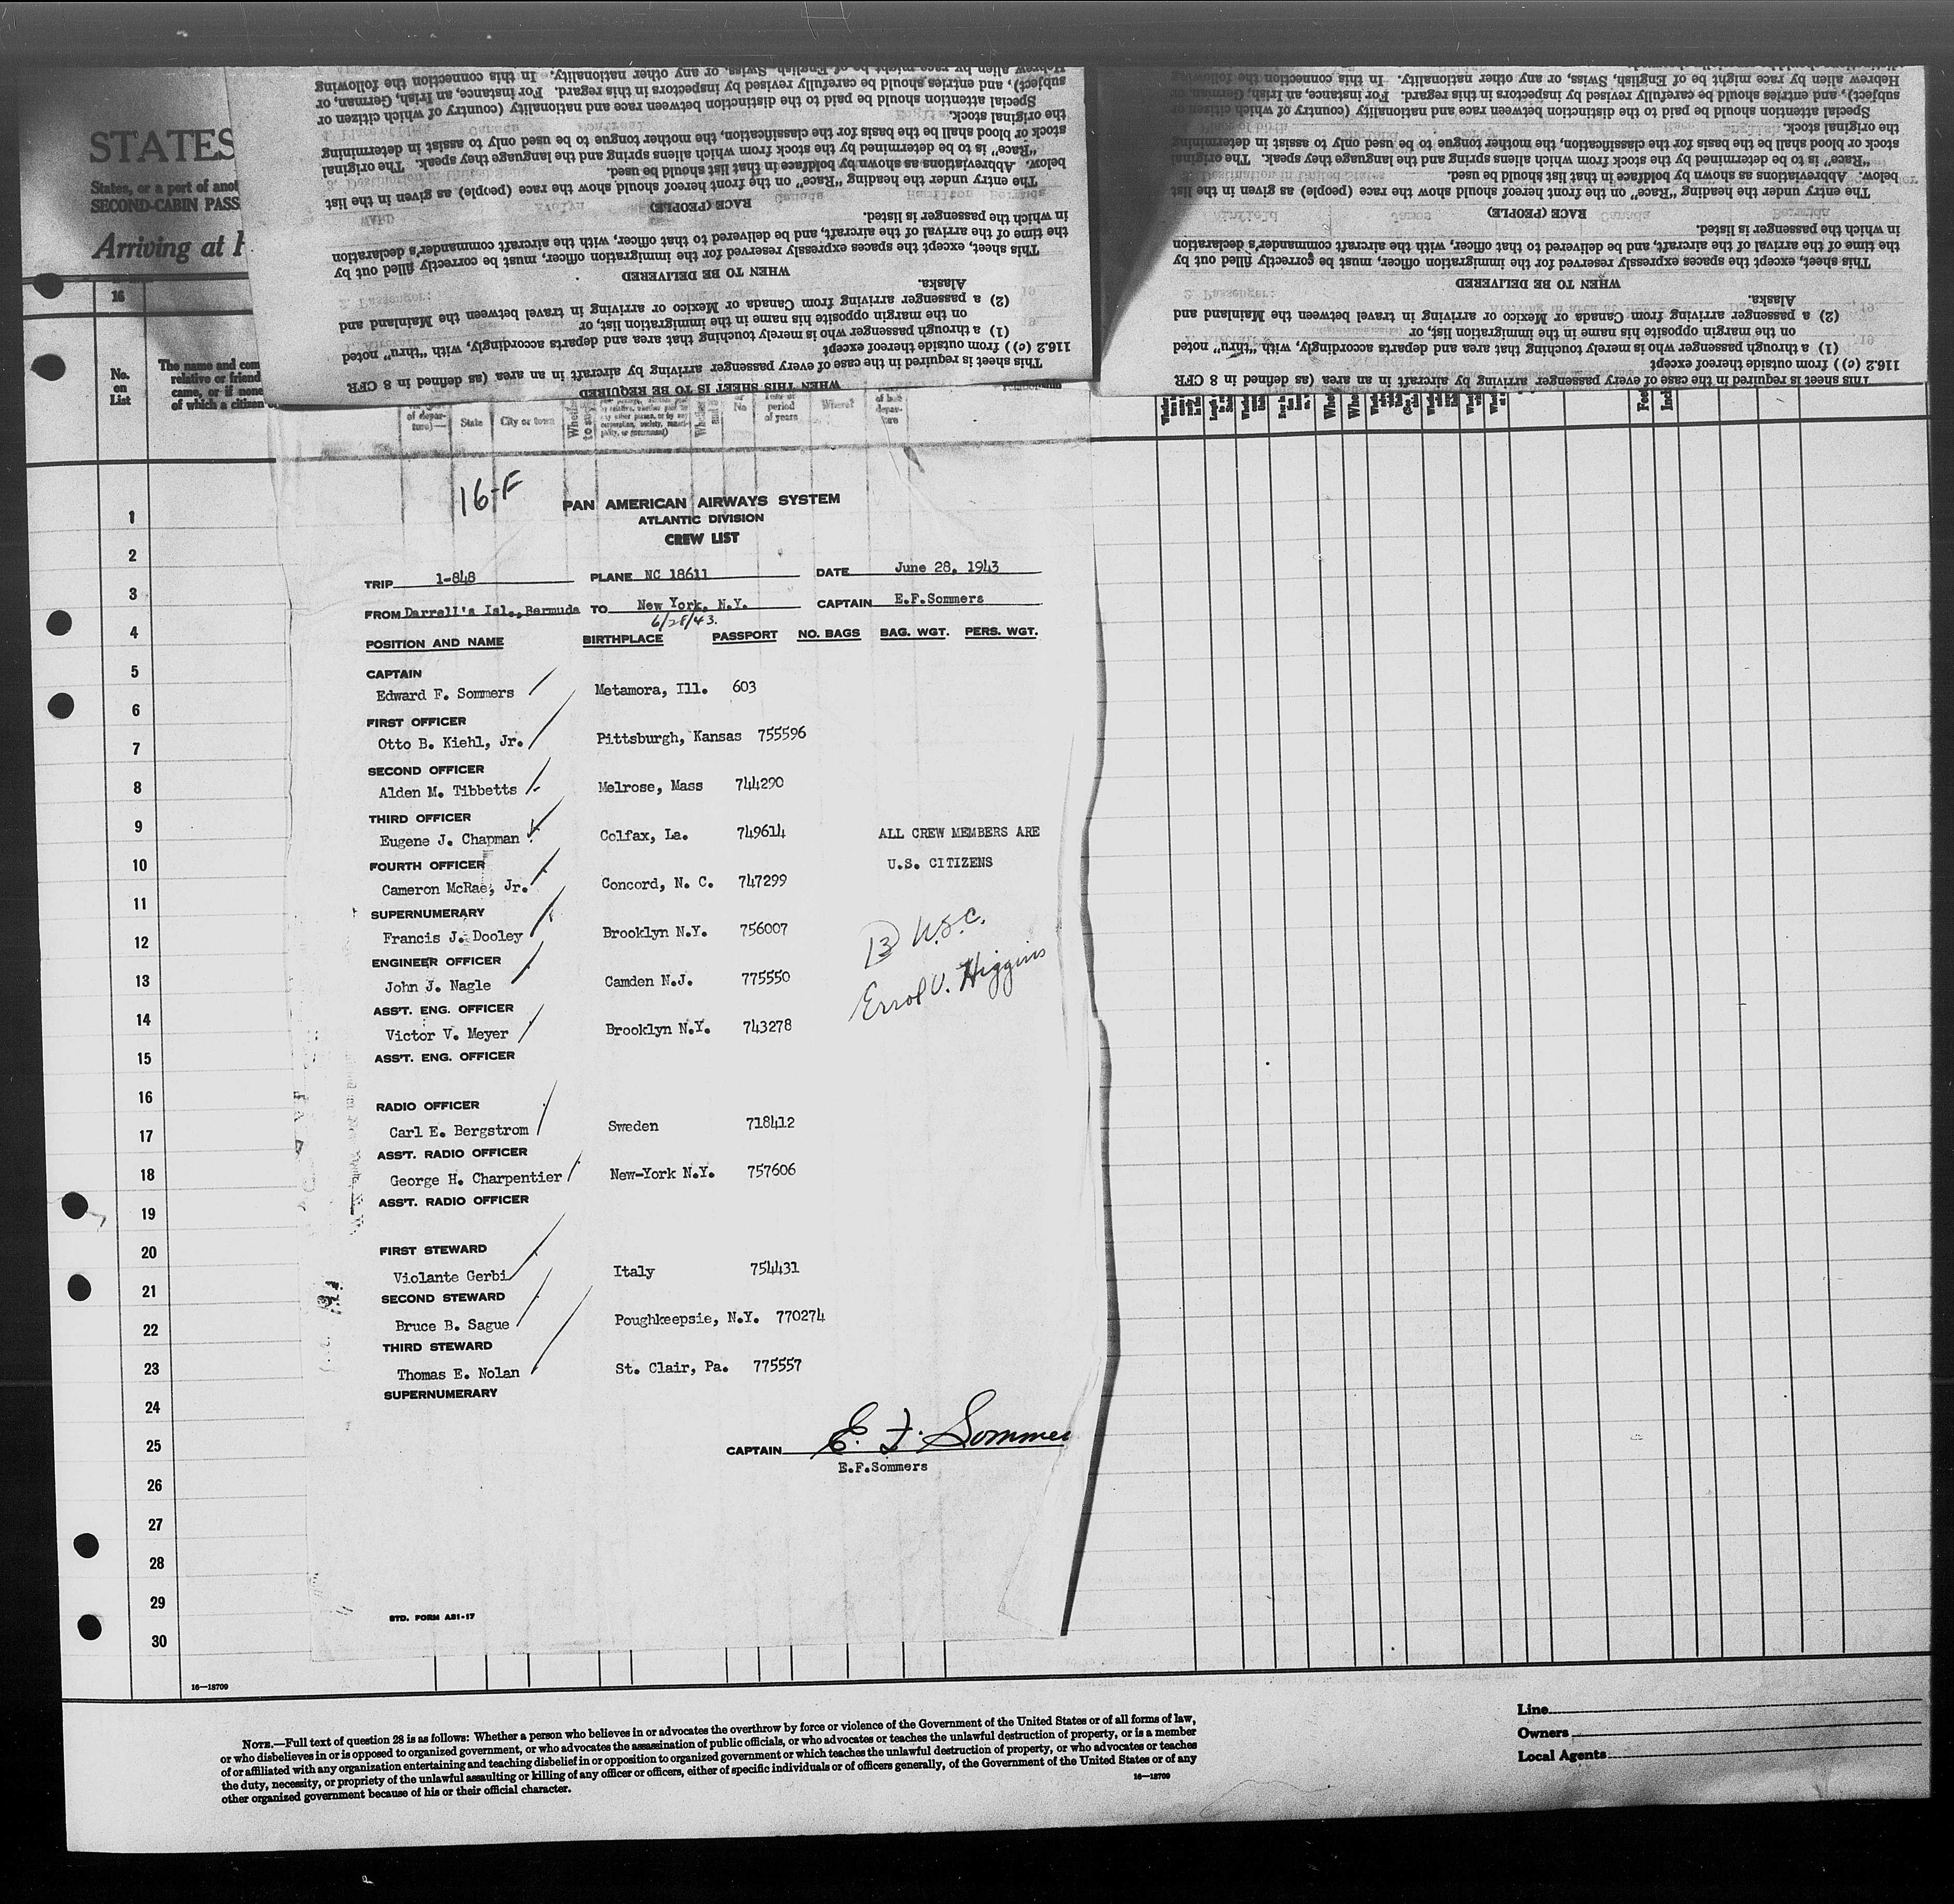 STATES
States, or a port of anot
SECOND-CABIN PASS
Arriving at
16
No.
on
List
The name and com
relative or friend
came, or if none
of which a citizen
WHEN THIS SHEET IS TO BE REQUIRED
This sheet is required in the case of every passenger arriving by aircraft in an area (as defined in 8 CFR
116.2 (c) ) from outside thereof except
(1) a through passenger who is merely touching that area and departs accordingly, with "thru" noted
on the margin opposite his name in the immigration list, or
(2) a passenger arriving from Canada or Mexico or arriving in travel between the Mainland and
Alaska.
WHEN TO BE DELIVERED
This sheet, except the spaces expressly reserved for the immigration officer, must be correctly filled out by
the time of the arrival of the aircraft, and be delivered to that officer, with the aircraft commander's declaration
in which the passenger is listed.
RACE (PEOPLE)
The entry under the heading "Race" on the front hereof should show the race (people) as given in the list
below. Abbreviations as shown by boldface in that list should be used.
"Race" is to be determined by the stock from which aliens spring and the language they speak. The original
stock or blood shall be the basis for the classification, the mother tongue to be used only to assist in determining
the original stock.
Special attention should be paid to the distinction between race and nationality (country of which citizen or
subject), and entries should be carefully revised by inspectors in this regard. For instance, an Irish, German, or
Hebrew alien by race might be of English, Swiss, or any other nationality. In this connection the following
This sheet is required in the case of every passenger arriving by aircraft in an area (as defined in 8 CFR
116.2 (c) ) from outside thereof except
(1) a through passenger who is merely touching that area and departs accordingly, with "thru" noted
on the margin opposite his name in the immigration list, or
(2) a passenger arriving from Canada or Mexico or arriving in travel between the Mainland and
Alaska.
WHEN TO BE DELIVERED
This sheet, except the spaces expressly reserved for the immigration officer, must be correctly filled out by
the time of the arrival of the aircraft, and be delivered to that officer, with the aircraft commander's declaration
in which the passenger is listed.
RACE (PEOPLE)
The entry under the heading "Race" on the front hereof should show the race (people) as given in the list
below. Abbreviations as shown by boldface in that list should be used.
"Race" is to be determined by the stock from which aliens spring and the language they speak. The original
stock or blood shall be the basis for the classification, the mother tongue to be used only to assist in determining
the original stock.
Special attention should be paid to the distinction between race and nationality (country of which citizen or
subject), and entries should be carefully revised by inspectors in this regard. For instance, an Irish, German, or
Hebrew alien by race might be of English, Swiss, or any other nationality. In this connection the following
State City or town No period of years Where?
16-F
PAN AMERICAN AIRWAYS SYSTEM
ATLANTIC DIVISION
CREW LIST
TRIP 1-848 PLANE NC 18611 DATE June 28, 1943
FROM Darrell's Isl., Bermuda TO New York, N.Y. CAPTAIN E.F.Sommers
6/28/43.
POSITION AND NAME BIRTHPLACE PASSPORT NO. BAGS BAG. WGT. PERS. WGT.
CAPTAIN
Edward F. Sommers Metamora, Ill. 603
FIRST OFFICER
Otto B. Kiehl, Jr. Pittsburgh, Kansas 755596
SECOND OFFICER
Alden M. Tibbetts Melrose, Mass 744290
THIRD OFFICER
Eugene J. Chapman Colfax, La. 749614 ALL CREW MEMBERS ARE
FOURTH OFFICER U.S. CITIZENS
Cameron McRae, Jr. Concord, N. C. 747299
SUPERNUMERARY
Francis J. Dooley Brooklyn N.Y. 756007
13 U.S.C.
ENGINEER OFFICER
John J. Nagle Camden N.J. 775550
Errol V. Higgins
ASS'T. ENG. OFFICER
Victor V. Meyer Brooklyn N.Y. 743278
ASS'T. ENG. OFFICER
RADIO OFFICER
Carl E. Bergstrom Sweden 718412
ASS'T. RADIO OFFICER
George H. Charpentier New-York N.Y. 757606
ASS'T. RADIO OFFICER
FIRST STEWARD
Violante Gerbi Italy 754431
SECOND STEWARD
Bruce B. Sague Poughkeepsie, N.Y. 770274
THIRD STEWARD
Thomas E. Nolan St. Clair, Pa. 775557
SUPERNUMERARY
CAPTAIN E. F. Sommers
E.F.Sommers
STD. FORM A31-17
1
2
3
4
5
6
7
8
9
10
11
12
13
14
15
16
17
18
19
20
21
22
23
24
25
26
27
28
29
30
16—18709
NOTE.—Full text of question 28 is as follows: Whether a person who believes in or advocates the overthrow by force or violence of the Government of the United States or of all forms of law,
or who disbelieves in or is opposed to organized government, or who advocates the assassination of public officials, or who advocates or teaches the unlawful destruction of property, or is a member
of or affiliated with any organization entertaining and teaching disbelief in or opposition to organized government or which teaches the unlawful destruction of property, or who advocates or teaches
the duty, necessity, or propriety of the unlawful assaulting or killing of any officer or officers, either of specific individuals or of officers generally, of the Government of the United States or of any
other organized government because of his or their official character.
16—18709
Line
Owners
Local Agents